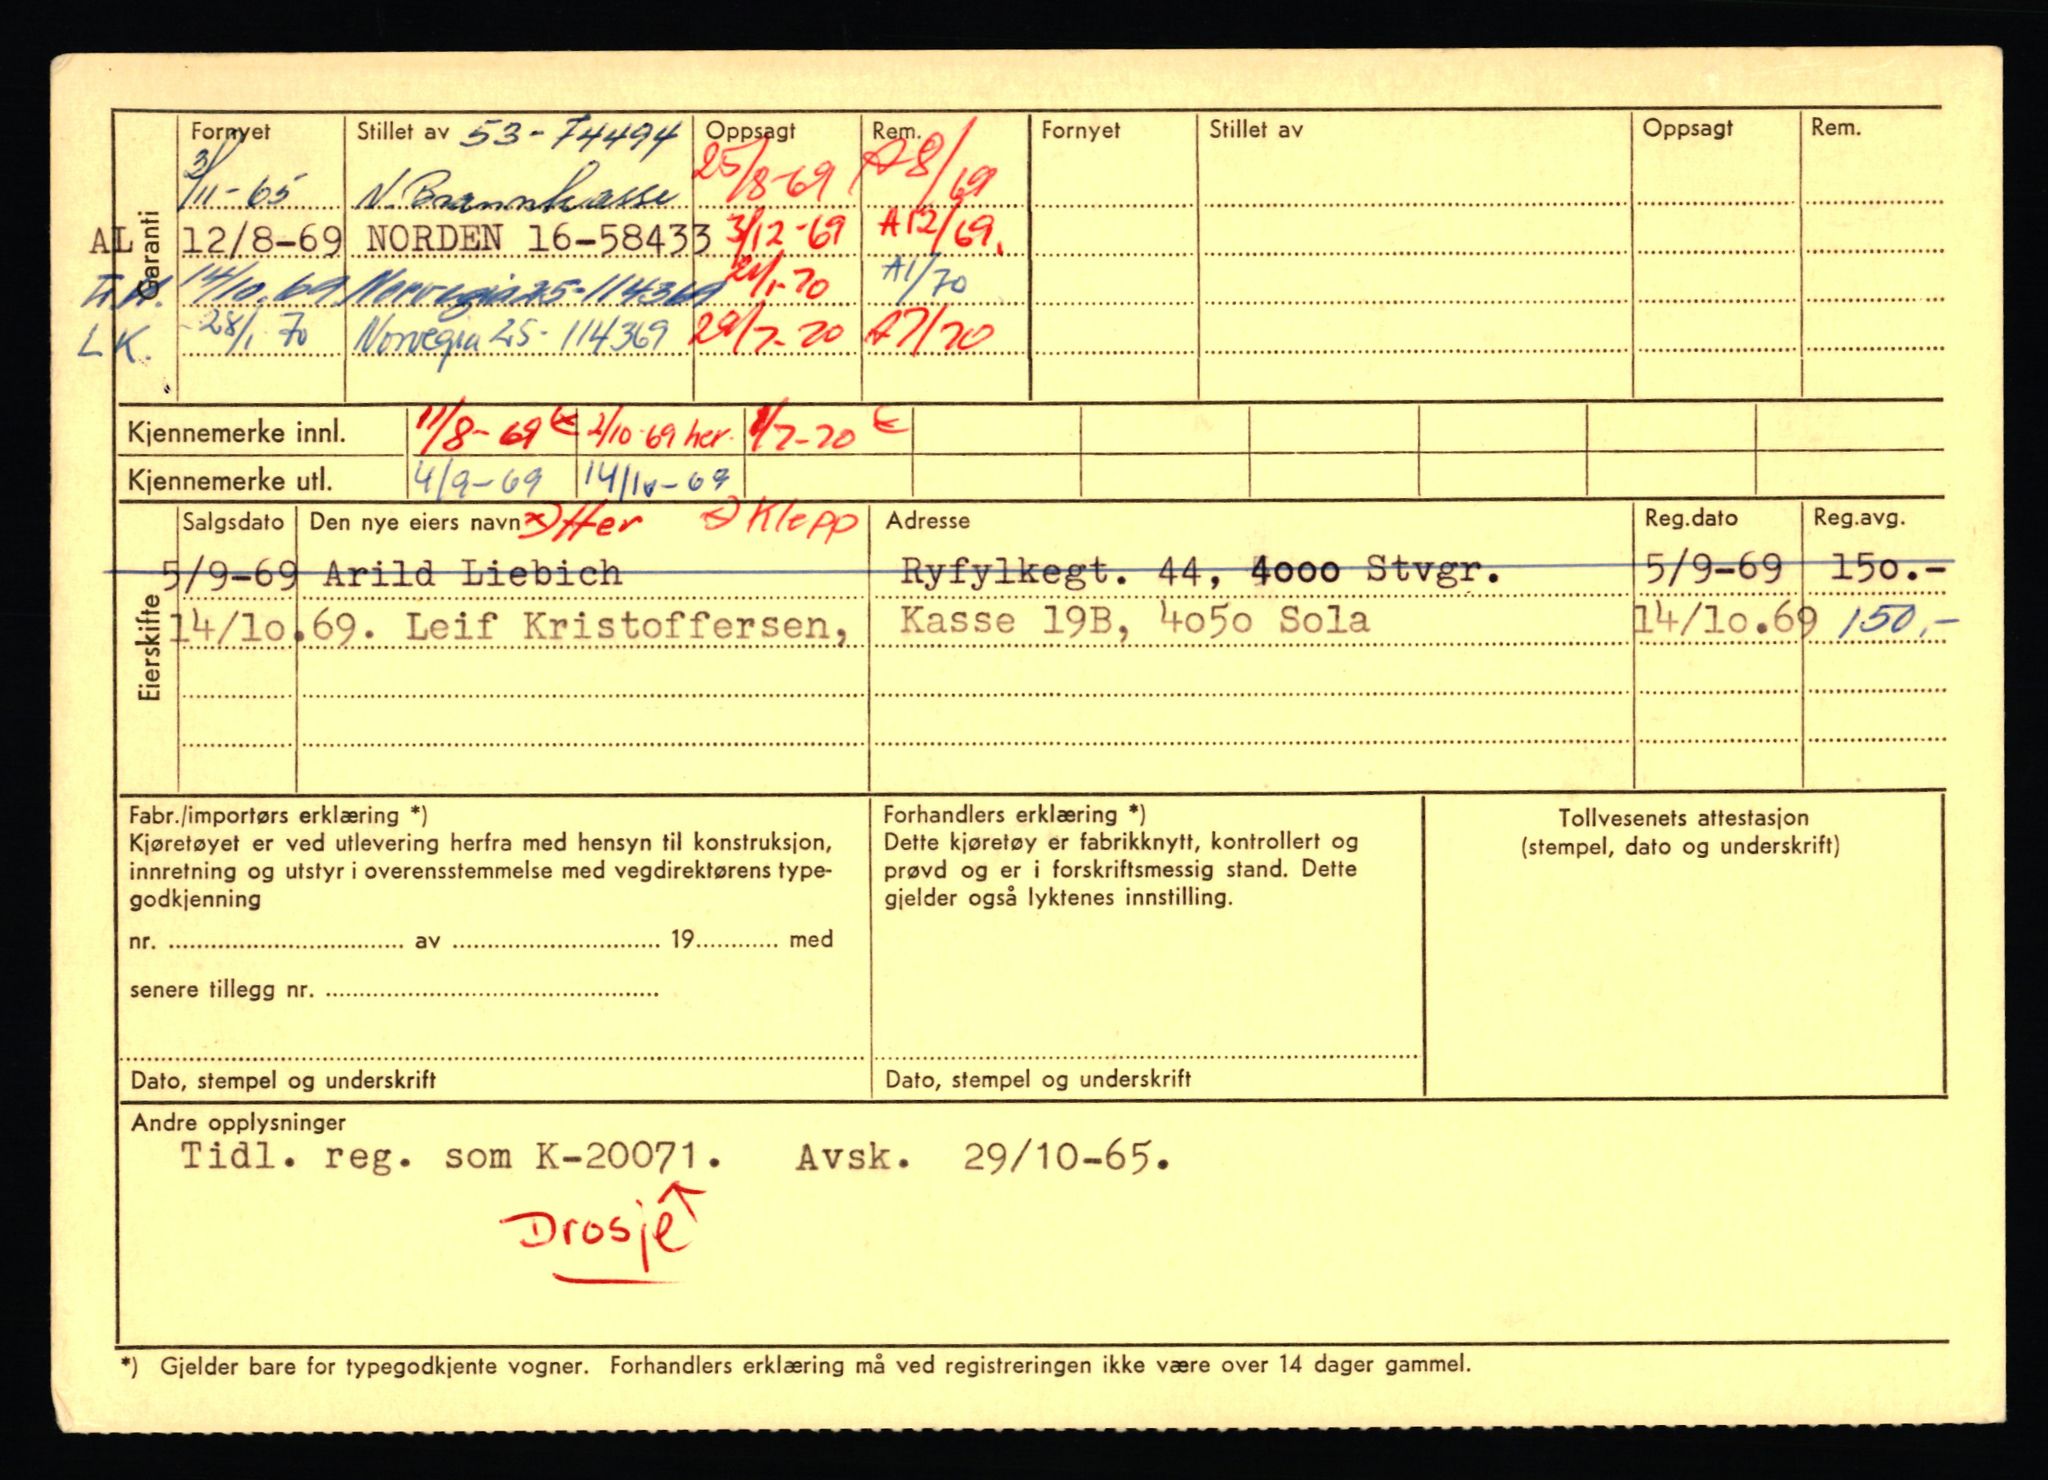 Garanti
Fornyet Stillet av 53-74494 Oppsagt Rem. Fornyet Stillet av Oppsagt Rem.
3/11-65 N. Brannkasse 25/8-69 A8/69
AL 12/8-69 NORDEN 16-58433 3/12-69 A12/69.
14/10.69 Norvegia 25-114369 21/1-70 A1/70
LK. 28/1 70 Norvegia 25-114369 29/7-70 A7/70
Kjennemerke innl. 11/8-69 2/10-69 her. 1/7-70
Kjennemerke utl. 4/9-69 14/10-69
Eierskifte
Salgsdato Den nye eiers navn Her Klepp Adresse Reg.dato Reg.avg.
5/9-69 Arild Liebich Ryfylkegt. 44, 4000 Stvgr. 5/9-69 150.-
14/10.69. Leif Kristoffersen, Kasse 19B, 4050 Sola 14/10.69 150,-
Fabr./importørs erklæring *)
Kjøretøyet er ved utlevering herfra med hensyn til konstruksjon,
innretning og utstyr i overensstemmelse med vegdirektørens type-
godkjenning
nr. .................... av .................... 19............ med
senere tillegg nr. ....................
Dato, stempel og underskrift
Forhandlers erklæring *)
Dette kjøretøy er fabrikknytt, kontrollert og
prøvd og er i forskriftsmessig stand. Dette
gjelder også lyktenes innstilling.
Dato, stempel og underskrift
Tollvesenets attestasjon
(stempel, dato og underskrift)
Andre opplysninger
Tidl. reg. som K-20071. Avsk. 29/10-65.
Drosje
*) Gjelder bare for typegodkjente vogner. Forhandlers erklæring må ved registreringen ikke være over 14 dager gammel.